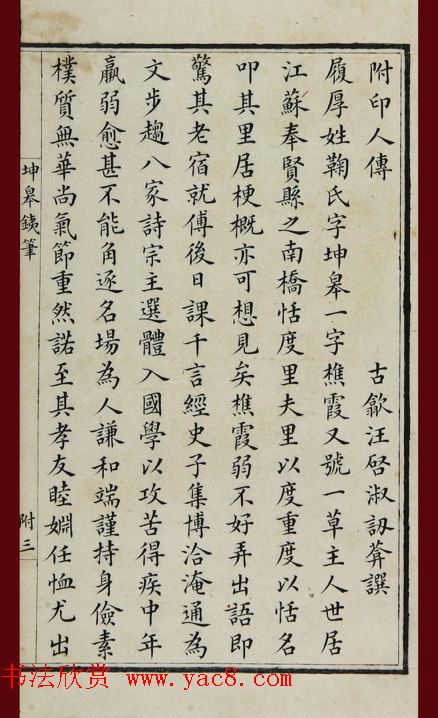 附印人傳
古歙汪啓淑訒葊譔
履厚姓鞠氏字坤皋一字樵霞又號一草主人世居
江蘇奉賢縣之南橋恬度里夫里以度重度以恬名
叩其里居梗概亦可想見矣樵霞弱不好弄出語即
驚其老宿就傅後日課千言經史子集博洽淹通為
文步趨八家詩宗主選體入國學以攻苦得疾中年
羸弱愈甚不能角逐名場為人謙和端謹持身儉素
樸質無華尚氣節重然諾至其孝友睦婣任恤尤出
坤皋鐵筆
附三
书法欣赏 www.yac8.com